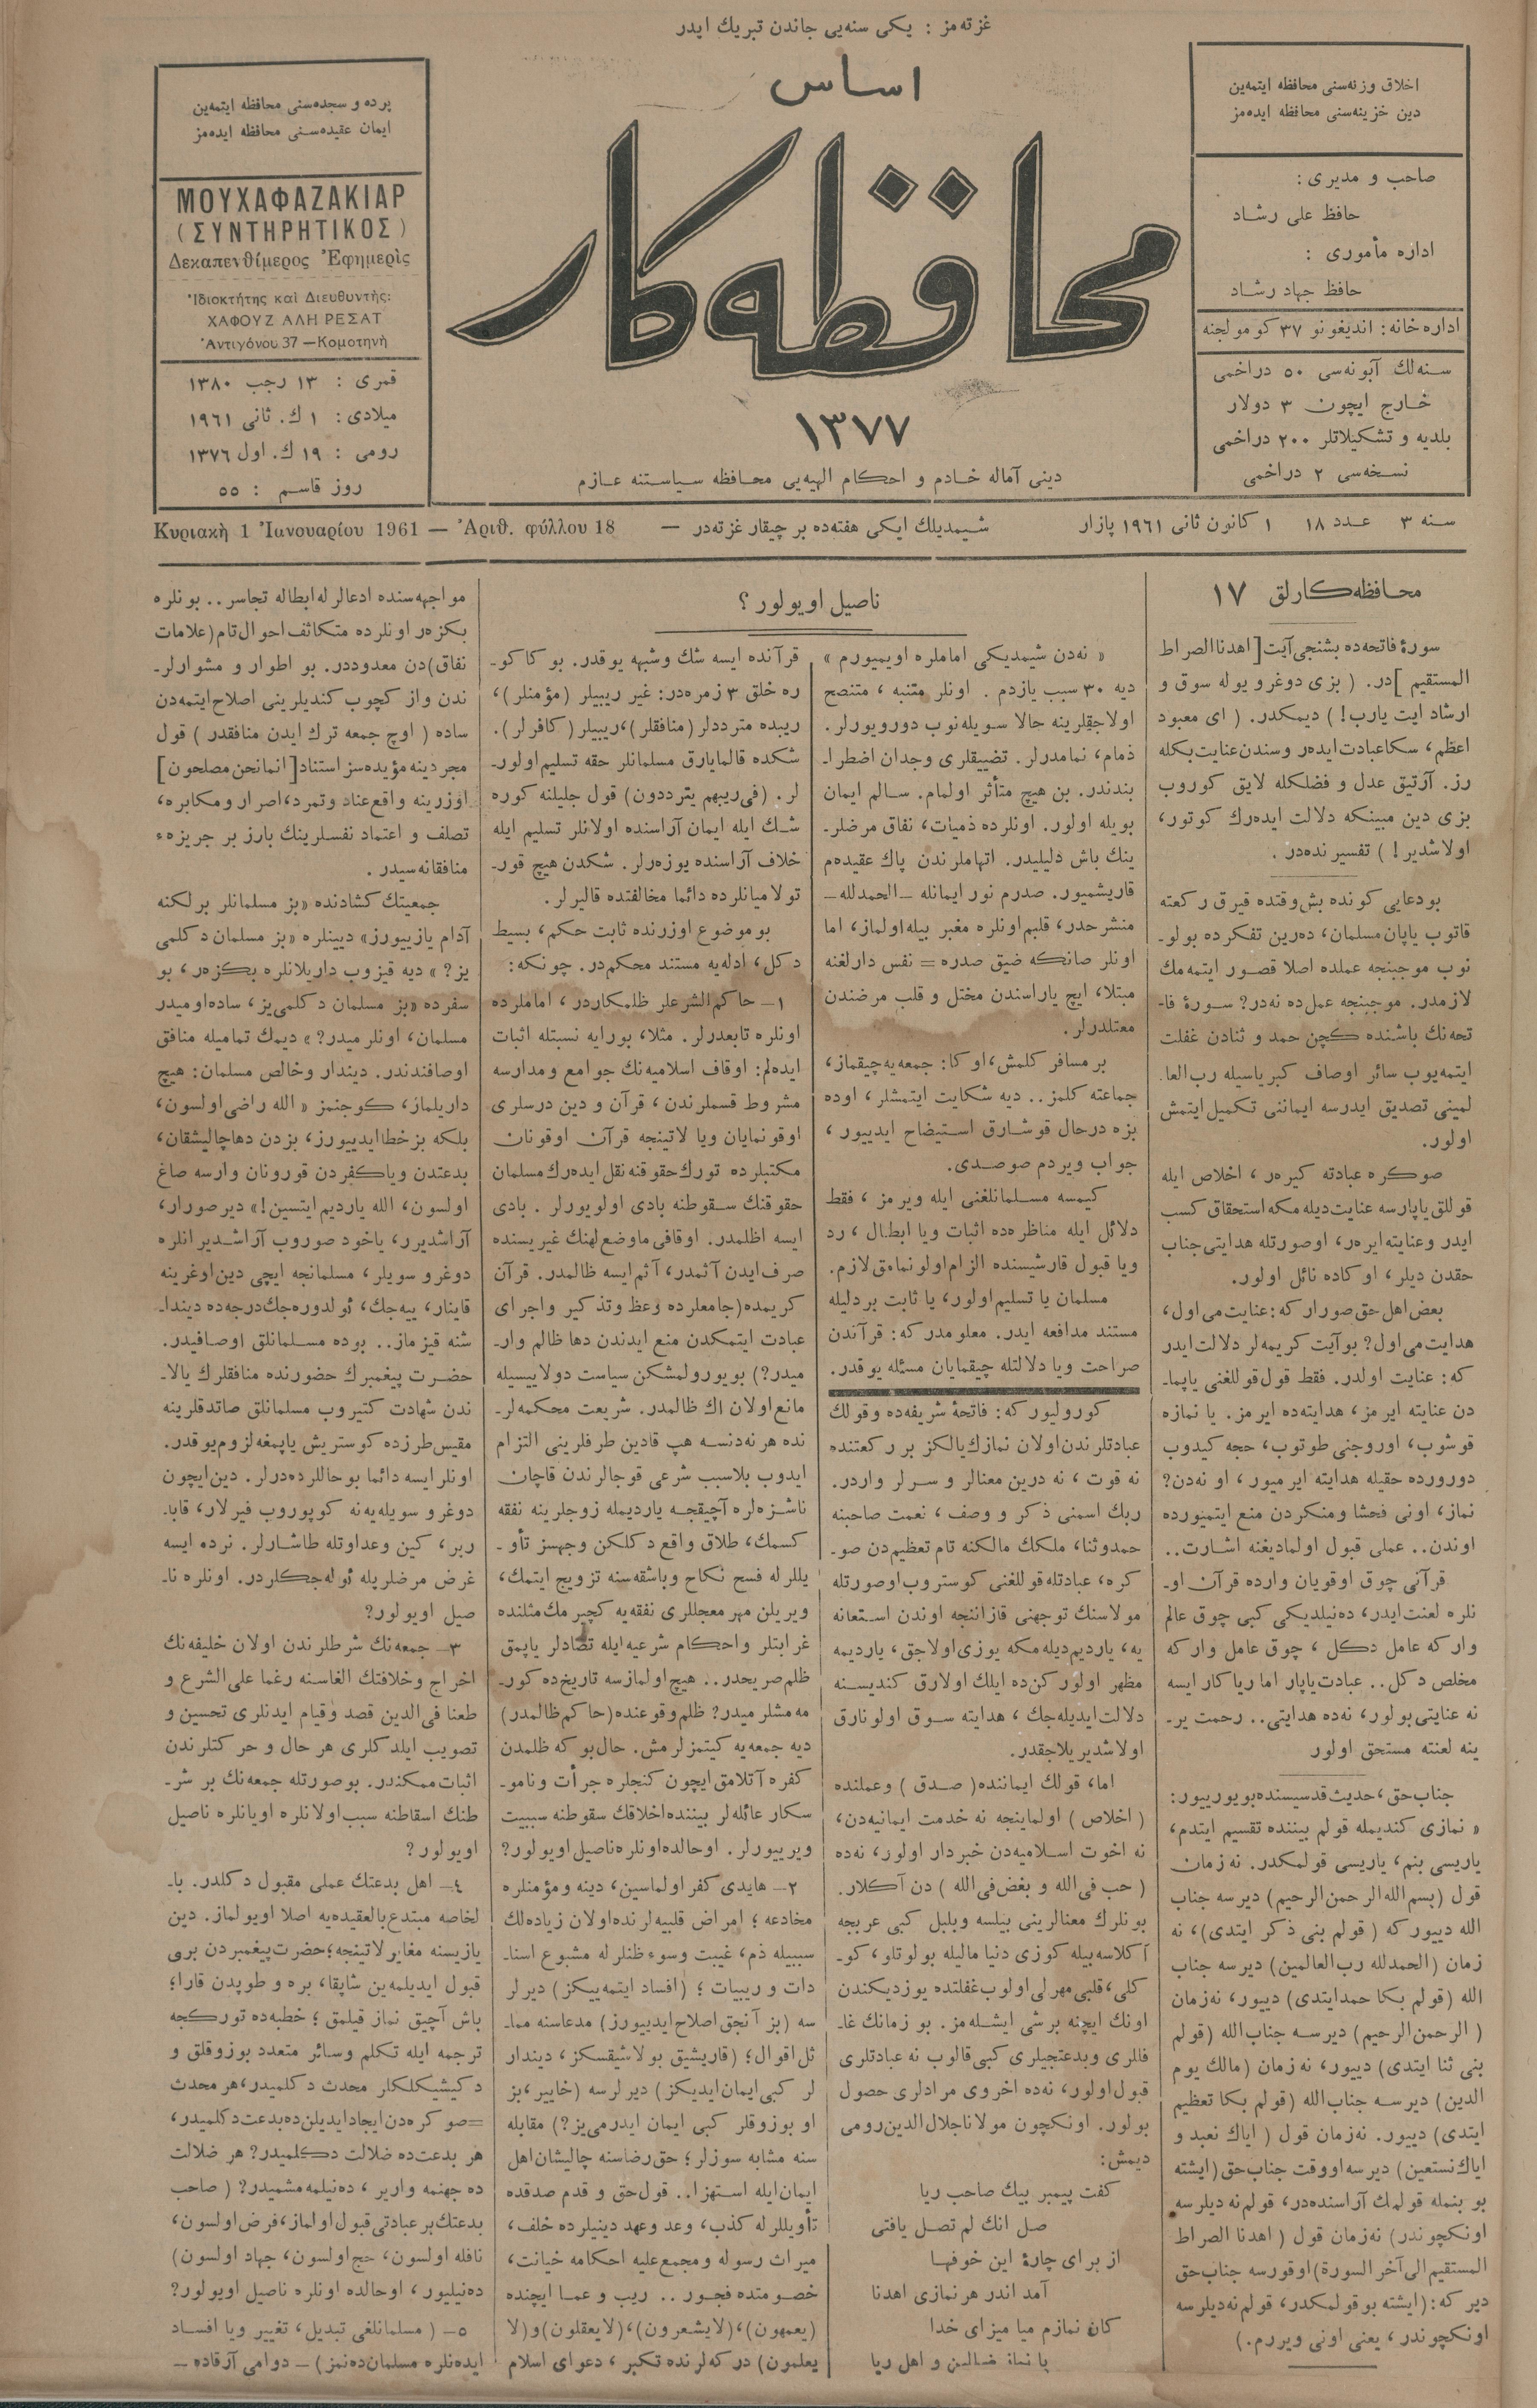 غزته‌مز : یكی سنه‌یی جاندن تبریك ایدر
اخلاق وزنه‌سنی محافظه ایتمه‌ین
دین خزینه‌سنی محافظه ایده‌مز
صاحب و مدیری :
حافظ علی رشاد
اداره مأموری :
حافظ جهاد رشاد
اداره‌خانه : اندیغونو ٣٧ كوموالجنه
سنه‌لك آبونه‌سی ٥٠ دراخمی
خارج ایچون ٣ دولار
بلدیه و تشكیلاتلر ٢٠٠ دراخمی
نسخه‌سی ٢ دراخمی
اساس
محافظه‌كار
١٣٧٧
دینی آماله خادم و احكام الهیه‌یی محافظه سیاستنه عازم
پرده و سجده‌سنی محافظه ایتمه‌ین
ایمان عقیده‌سنی محافظه ایده‌مز
ΜΟΥΧΑΦΑΖΑΚΙΑΡ
(ΣΥΝΤΗΡΗΤΙΚΟΣ)
Δεκαπενθίμερος Ἐφημερὶς
Ἰδιοκτήτης καὶ Διευθυντὴς:
ΧΑΦΟΥΖ ΑΛΗ ΡΕΣΑΤ
Ἀντιγόνου 37 — Κομοτηνὴ
قمری : ١٣ رجب ١٣٨٠
میلادی : ١ ك. ثانی ١٩٦١
رومی : ١٩ ك. اول ١٣٧٦
روز قاسم : ٥٥
سنه ٣ عدد ١٨ ١ كانون ثانی ١٩٦١ پازار
شیمدیلك ایكی هفته‌ده بر چیقار غزته‌در —
Κυριακὴ 1 Ἰανουαρίου 1961 — Ἀριθ. φύλλου 18
محافظه‌كارلق ١٧
سورۀ فاتحه‌ده بشنجی آیت [ اهدنا الصراط
المستقیم ] در. ( بزی دوغرو یوله سوق و
ارشاد ایت یارب! ) دیمكدر. ( ای معبود
اعظم، سكا عبادت ایده‌ر و سندن عنایت بكله
رز. آرتیق عدل و فضلكله لایق كوروب
بزی دین مبینكه دلالت ایده‌رك كوتور،
اولاشدیر! ) تفسیرنده‌در .
بو دعایی كونده بش وقتده قیرق ركعته
قاتوب یاپان مسلمان، ده‌رین تفكرده بولو-
نوب موجبنجه عملده اصلا قصور ایتمه‌مك
لازمدر. موجبنجه عمل ده نه‌در؟ سورۀ فا-
تحه‌نك باشنده كچن حمد و ثنادن غفلت
ایتمه‌یوب سائر اوصاف كبریاسیله رب العا-
لمینی تصدیق ایدرسه ایماننی تكمیل ایتمش
اولور.
صوكره عبادته كیره‌ر، اخلاص ایله
قوللق یاپارسه عنایت دیله‌مكه استحقاق كسب
ایدر و عنایته ایره‌ر، او صورتله هدایتی جناب
حقدن دیلر، او كاده نائل اولور.
بعض اهل حق صورار كه : عنایت می اول،
هدایت می اول؟ بو آیت كریمه‌لر دلالت ایدر
كه : عنایت اولدر. فقط قول قوللغنی یاپما-
دن عنایته ایرمز، هدایته‌ده ایرمز. یا نمازه
قوشوب، اوروجنی طوتوب، حجه كیدوب
دورورده حقیله هدایته ایرمیور، او نه‌دن؟
نماز، اونی فحشا و منكردن منع ایتمیورده
اوندن.. عملی قبول اولمادیغنه اشارت..
قرآنی چوق اوقویان وارده قرآن او-
نلره لعنت ایدر، ده‌نیلدیكی كبی چوق عالم
وار كه عامل دكل ، چوق عامل وار كه
مخلص دكل.. عبادت یاپار اما ریاكار ایسه
نه عنایتی بولور، نه‌ده هدایتی.. رحمت یر-
ینه لعنته مستحق اولور
جناب حق، حدیث قدسیسنده بویورییور:
« نمازی كندیمله قولم بیننده تقسیم ایتدم،
یاریسی بنم، یاریسی قولمكدر. نه زمان
قول (بسم الله الرحمن الرحیم) دیرسه جناب
الله دییور كه ( قولم بنی ذكر ایتدی)، نه
زمان (الحمدلله رب العالمین) دیرسه جناب
الله (قولم بكا حمد ایتدی) دییور، نه زمان
( الرحمن الرحیم) دیرسه جناب الله (قولم
بنی ثنا ایتدی) دییور، نه زمان (مالك یوم
الدین) دیرسه جناب الله (قولم بكا تعظیم
ایتدی) دییور. نه زمان قول ( ایاك نعبد و
ایاك نستعین) دیرسه او وقت جناب حق (ایشته
بو بنمله قولمك آراسنده‌در، قولم نه دیلرسه
اونكچوندر) نه زمان قول ( اهدنا الصراط
المستقیم الی آخر السورة) اوقورسه جناب حق
دیر كه : (ایشته بو قولمكدر، قولم نه دیلرسه
اونكچوندر، یعنی اونی ویررم.)
ناصیل اویولور ؟
« نه‌دن شیمدیكی اماملره اویمیورم »
دیه ٣٠ سبب یازدم . اونلر متنبه ، متنصح
اولاجقلرینه حالا سویله‌نوب دورویورلر.
ذمام، نمامدرلر. تضییقلری وجدان اضطرا-
بندندر. بن هیچ متأثر اولمام. سالم ایمان
بویله اولور. اونلرده ذمیات، نفاق مرضلر-
ینك باش دلیلیدر. اتهاملرندن پاك عقیده‌م
قاریشمیور. صدرم نور ایمانله - الحمدلله -
منشرحدر، قلبم اونلره مغبر بیله اولماز، اما
اونلر صانكه ضیق صدره = نفس دارلغنه
مبتلا، ایچ یاراسندن مختل و قلب مرضندن
معتلدرلر.
بر مسافر كلمش، اوكا : جمعه‌یه چیقماز،
جماعته كلمز.. دیه شكایت ایتمشلر، اوده
بزه درحال قوشارق استیضاح ایدییور ،
جواب ویردم صوصدی.
كیمسه مسلمانلغنی ایله ویرمز ، فقط
دلائل ایله مناظره‌ده اثبات ویا ابطال ، رد
ویا قبول قارشیسنده الزام اولونمامق لازم.
مسلمان یا تسلیم اولور، یا ثابت بر دلیله
مستند مدافعه ایدر. معلومدر كه : قرآندن
صراحت ویا دلالتله چیقمایان مسئله یوقدر.
كورولیور كه : فاتحۀ شریفه‌ده و قولك
عبادتلرندن اولان نمازك یالكز بر ركعتنده
نه قوت ، نه درین معنالر و سرلر واردر.
ربك اسمنی ذكر و وصف ، نعمت صاحبنه
حمد وثنا، ملكك مالكنه تام تعظیم دن صو-
كره، عبادتله قوللغنی كوستروب او صورتله
مولاسنك توجهنی قازاننجه اوندن استعانه
یه، یاردیم دیله‌مكه یوزی اولاجق، یاردیمه
مظهر اولوركن ده ایلك اولارق كندیسنه
دلالت ایدیله‌جك ، هدایته سوق اولونارق
اولاشدیریلاجقدر.
اما، قولك ایماننده ( صدق ) وعملنده
( اخلاص ) اولماینجه نه خدمت ایمانیه‌دن،
نه اخوت اسلامیه‌دن خبردار اولور، نه‌ده
( حب فی الله و بغض فی الله ) دن آكلار.
بونلرك معنالرینی بیلسه و بلبل كبی عربجه
آكلاسه بیله كوزی دنیا مالیله بولوتلو، كو-
كلی، قلبی مهرلی اولوب غفلتده یوزدیكندن
اونك ایچنه برشی ایشله‌مز. بو زمانك غا-
فللری و بدعتجیلری كبی قالوب نه عبادتلری
قبول اولور، نه‌ده اخروی مرادلری حصول
بولور. اونكچون مولانا جلال الدین رومی
دیمش:
كفت پیمبر بیك صاحب ریا
صل انك لم تصل یافتی
از برای چارۀ این خوفها
آمد اندر هر نمازی اهدنا
كان نمازم میامیز ای خدا
با نماز ضالین و اهل ریا
قرآنده ایسه شك وشبهه یوقدر. بوكا كو-
ره خلق ٣ زمره‌در: غیر ریبیلر (مؤمنلر)،
ریبده مترددلر (منافقلر)، ریبیلر (كافرلر).
شكده قالمایارق مسلمانلر حقه تسلیم اولور-
لر. (فی ریبهم یترددون) قول جلیلنه كوره
شك ایله ایمان آراسنده اولانلر تسلیم ایله
خلاف آراسنده یوزه‌رلر. شكدن هیچ قور-
تولامیانلرده دائما مخالفتده قالیرلر.
بو موضوع اوزرنده ثابت حكم، بسیط
دكل، ادله‌یه مستند محكم‌در. چونكه:
١- حاكم الشرعلر ظلمكاردر، اماملرده
اونلره تابعدرلر. مثلا، بورایه نسبتله اثبات
ایده‌لم: اوقاف اسلامیه‌نك جوامع و مدارسه
مشروط قسملرندن، قرآن و دین درسلری
اوقونمایان ویا لاتینجه قرآن اوقونان
مكتبلرده تورك حقوقنه نقل ایده‌رك مسلمان
حقوقنك سقوطنه بادی اولویورلر . بادی
ایسه اظلمدر. اوقافی ماوضع لهنك غیریسنده
صرف ایدن آثمدر، آثم ایسه ظالمدر. قرآن
كریمده (جامعلرده وعظ و تذكیر و اجرای
عبادت ایتمكدن منع ایدندن دها ظالم وار-
میدر؟) بویورولمشكن سیاست دولاییسیله
مانع اولان اك ظالمدر. شریعت محكمه‌لر-
نده هر نه‌دنسه هپ قادین طرفلرینی التزام
ایدوب بلاسبب شرعی قوجالرندن قاچان
ناشزه‌لره آچیقجه یاردیمله زوجلرینه نفقه
كسمك، طلاق واقع دكلكن وجهسز تأو-
یللرله فسح نكاح وباشقه‌سنه تزویج ایتمك،
ویریلن مهر معجللری نفقه‌یه كچیرمك مثلنده
غرابتلر واحكام شرعیه ایله تضادلر یاپمق
ظلم صریحدر.. هیچ اولمازسه تاریخده كور-
مه‌مشلر میدر؟ ظلم وقوعنده (حاكم ظالمدر)
دیه جمعه‌یه كیتمزلرمش. حال بو كه ظلمدن
كفره آتلامق ایچون كنجلره جرأت و نامو-
سكار عائله‌لر بیننده اخلاقك سقوطنه سببیت
ویرییورلر. او حالده اونلره ناصیل اویولور؟
٢- هایدی كفر اولماسین، دینه و مؤمنلره
مخادعه ؛ امراض قلبیه‌لرنده اولان زیاده‌لك
سببیله ذم، غیبت وسوء ظنلرله مشبوع اسنا-
دات و ریبیات ؛ (افساد ایتمه‌ییكز) دیرلر
سه (بز آنجق اصلاح ایدییورز) مدعاسنه مما-
ثل اقوال؛ (قاریشیق بولاشیقسكز، دیندار
لر كبی ایمان ایدیكز) دیرلرسه (خاییر، بز
او بوزوقلر كبی ایمان ایدرمی‌یز؟) مقابله
سنه مشابه سوزلر؛ حق رضاسنه چالیشان اهل
ایمان ایله استهزا.. قول حق و قدم صدقده
تأویللرله كذب، وعد وعهد دینیلرده خلف،
میراث رسوله و مجمع علیه احكامه خیانت،
خصومتده فجور .. ریب و عما ایچنده
(یعمهون)، (لایشعرون)، (لایعقلون) و (لا
یعلمون) دركه‌لرنده تكبر ، دعوای اسلام
مواجهه‌سنده ادعالرله ابطاله تجاسر.. بونلره
بكزه‌ر اونلرده متكاثف احوال تام (علامات
نفاق) دن معدوددر. بو اطوار و مشوارلر-
ندن واز كچوب كندیلرینی اصلاح ایتمه‌دن
ساده ( اوچ جمعه ترك ایدن منافقدر ) قول
مجردینه مؤیده‌سز استناد [ انما نحن مصلحون ]
اوزرینه واقع عناد وتمرد، اصرار و مكابره،
تصلف و اعتماد نفسلرینك بارز بر جریزه‌ء
منافقانه‌سیدر .
جمعیتك كشادنده « بز مسلمانلر برلكنه
آدام یازییورز» دیینلره « بز مسلمان دكلمی
یز؟ » دیه قیزوب داریلانلره بكزه‌ر، بو
سفرده « بز مسلمان دكلمی‌یز، ساده او میدر
مسلمان، اونلر میدر؟ » دیمك تمامیله منافق
اوصافندندر. دیندار وخالص مسلمان: هیچ
داریلماز، كوجنمز « الله راضی اولسون،
بلكه بز خطا ایدییورز، بزدن دها چالیشقان،
بدعتدن ویا كفردن قورونان وارسه صاغ
اولسون، الله یاردیم ایتسین! » دیر صورار،
آراشدیرر، یاخود صوروب آراشدیرانلره
دوغرو سویلر، مسلمانجه ایچی دین اوغرینه
قاینار، ییه‌جك، ئولدوره‌جك درجه‌ده دیندا-
شنه قیزماز.. بوده مسلمانلق اوصافیدر.
حضرت پیغمبرك حضورنده منافقلرك یالا-
ندن شهادت كتیروب مسلمانلق صاتدقلرینه
مقیس طرزده كوستریش یاپمغه لزوم یوقدر.
اونلر ایسه دائما بو حاللرده‌درلر. دین ایچون
دوغرو سویله‌یه‌نه كوپوروب فیرلار، قابا-
ریر، كین وعداوتله طاشارلر. نرده ایسه
غرض مرضلریله ئوله‌جكلردر. اونلره نا-
صیل اویولور؟
٣- جمعه‌نك شرطلرندن اولان خلیفه‌نك
اخراج وخلافتك الغاسنه رغما علی الشرع و
طعنا فی الدین قصد وقیام ایدنلری تحسین و
تصویب ایلدكلری هر حال و حركتلرندن
اثبات ممكندر. بو صورتله جمعه‌نك بر شر-
طنك اسقاطنه سبب اولانلره اویانلره ناصیل
اویولور ؟
٤- اهل بدعتك عملی مقبول دكلدر. با-
لخاصه مبتدع بالعقیده‌یه اصلا اویولماز. دین
یازیسنه مغایر لاتینجه؛ حضرت پیغمبردن بری
قبول ایدیلمه‌ین شاپقا، بره و طوپدن قارا؛
باش آچیق نماز قیلمق ؛ خطبه‌ده توركجه
ترجمه ایله تكلم وسائر متعدد بوزوقلق و
دكیشیكلكلر محدث دكلمیدر، هر محدث
=صوكره‌دن ایجاد ایدیلن ده بدعت دكلمیدر،
هر بدعت ده ضلالت دكلمیدر؟ هر ضلالت
ده جهنمه واریر ، ده‌نیلمه‌مشمیدر؟ ( صاحب
بدعتك بر عبادتی قبول اولماز، فرض اولسون،
نافله اولسون، حج اولسون، جهاد اولسون)
ده‌نیلیور ، او حالده اونلره ناصیل اویولور؟
٥- ( مسلمانلغی تبدیل، تغییر ویا افساد
ایده‌نلره مسلمان ده‌نمز) - دوامی آرقاده -